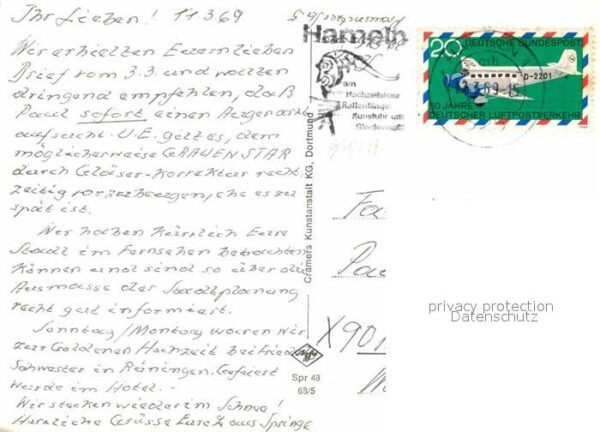 Ihr Lieben! 11.3.69
Wir erhielten Euern lieben
Brief vom 3.3. und wollen
dringend empfehlen, daß
Paul sofort einen Augenarzt
aufsucht. U.E. geht es, dem
möglicherweise GRAUEN STAR
durch Gläser-Korrektur recht-
zeitig vorzubeugen, ehe es zu
spät ist.
Wir haben kürzlich Eure
Stadt im Fernsehen betrachten
können und sind so über die
Ausmasse der Stadtplanung
recht gut informiert.
Sonntag/Montag waren wir
zur Goldenen Hochzeit bei Frieda
Schwester in Reiningen. Gefeiert
wurde im Hotel.-
Wir stecken wieder im Schnee!
Herzliche Grüsse Euch aus Springe
Hameln
am
Hochzeitshaus
Rattenfänger
Kunstuhr und
Glockenspiel
20 DEUTSCHE BUNDESPOST
D-2201
50 JAHRE
DEUTSCHER LUFTPOSTVERKEHR
Cramers Kunstanstalt KG, Dortmund
Agfa
Spr 48
68/5
Fa
Pa
X901
privacy protection
Datenschutz